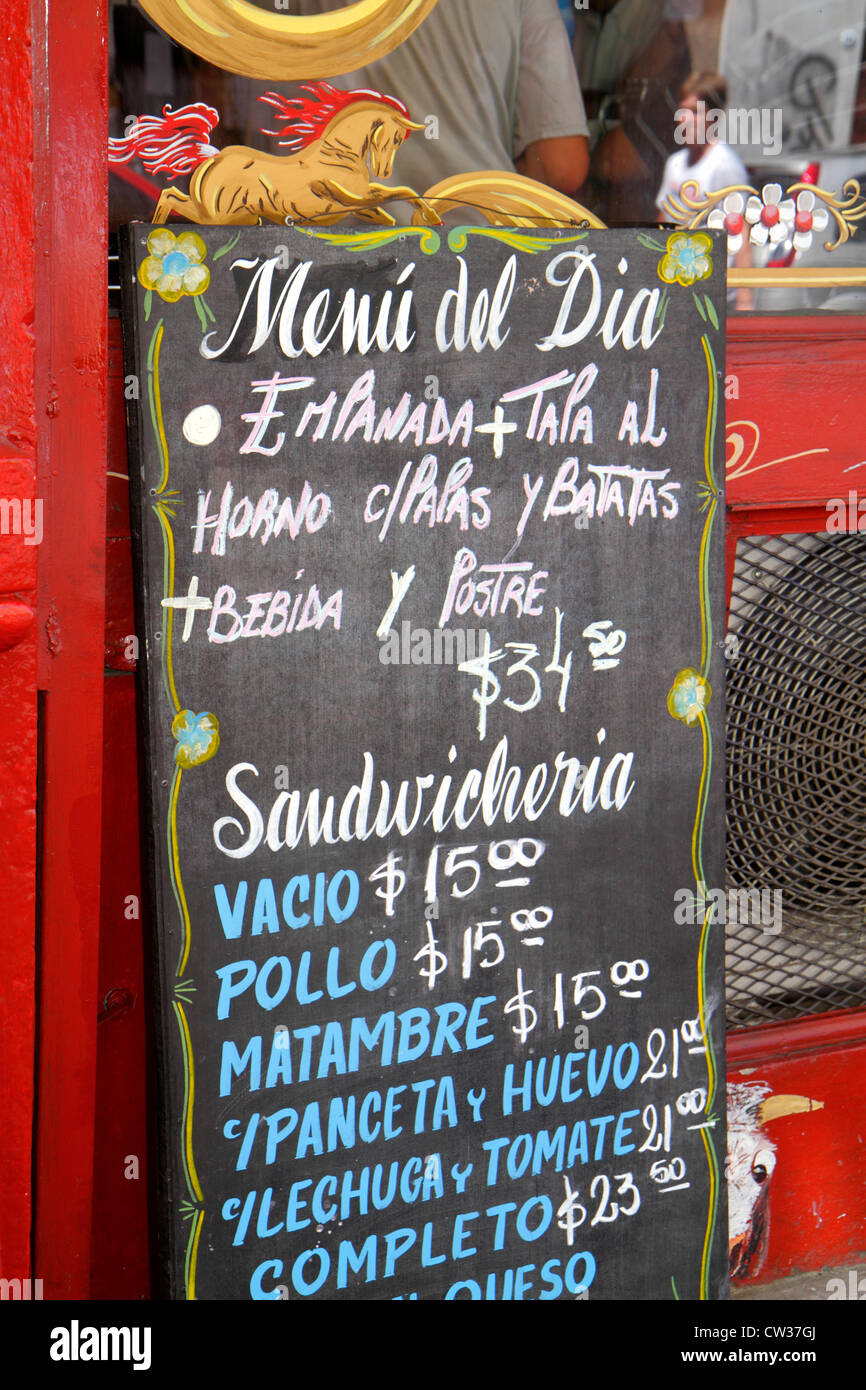 Menú del Dia
EMPANADA + TAPA AL
HORNO c/PAPAS Y BATATAS
+ BEBIDA Y POSTRE
$34 50
Sandwicheria
VACIO $15 00
POLLO $15 00
MATAMBRE $15 00
c/PANCETA Y HUEVO 21 00
c/LECHUGA Y TOMATE 21 00
COMPLETO $23 50
QUESO
alamy
Image ID: CW37GJ
www.alamy.com